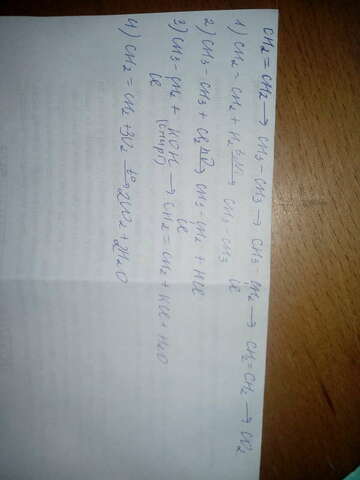 CH2=CH2 → CH3-CH3 → CH3-CH2 → CH2=CH2 → CO2
Cl
1) CH2=CH2 + H2 → CH3-CH3
2) CH3-CH3 + Cl2 hν→ CH3-CH2 + HCl
Cl
3) CH3-CH2 + KOH → CH2=CH2 + KCl + H2O
Cl (спирт)
4) CH2=CH2 + 3O2 t°→ 2CO2 + 2H2O